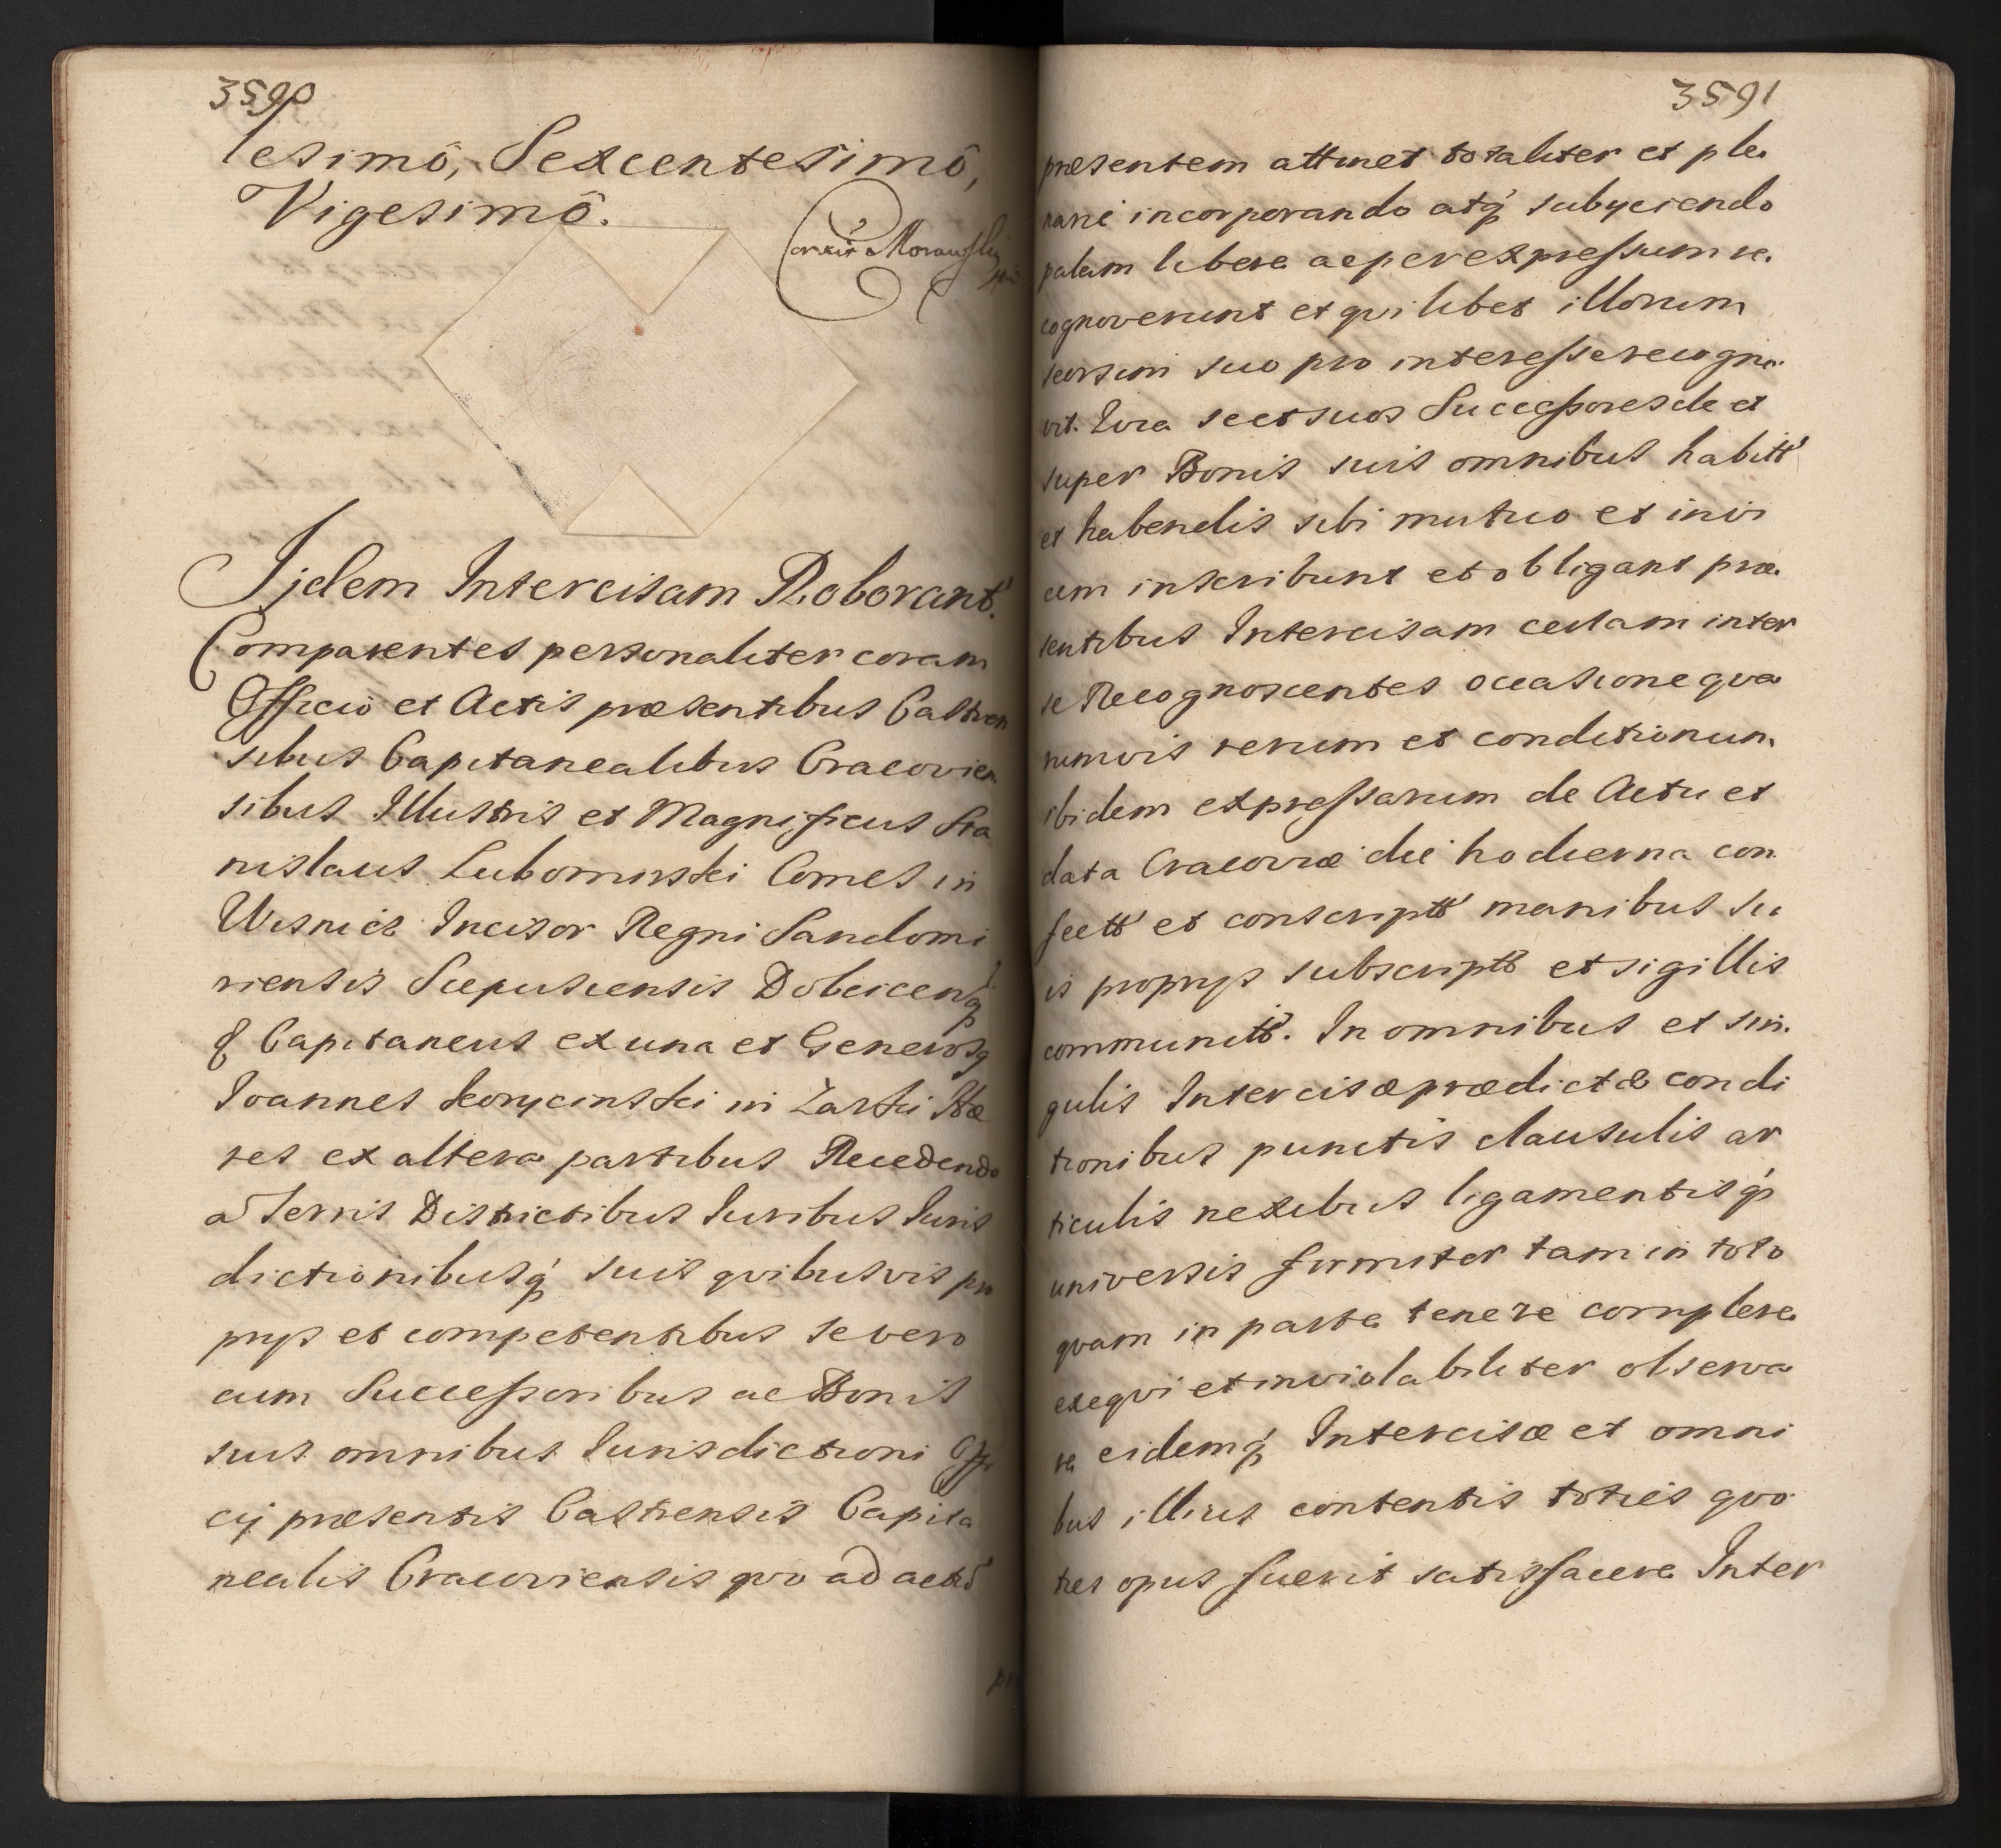 3590
lesimô, Sexcentesimô,
Vigesimô.
Morawsky
Ijdem Intercisam Roborant.
Comparentes personaliter coram
Officiô et Actis præsentibus Castren
sibus Capitanealibus Cracovien
sibus Illustris et Magnificus Sta
nislaus Lubomirski Comes in
Wisnicz Incisor Regni Sandomi
riensis Scepusiensis Dobcicensq́
q Capitaneus ex una et Generosq
Ioannes Korycinski in Zarki Hæ
res ex altera partibus Recedendo
a Terris Districtibus Iuribus Iuris
dictionibusq́ suis qvibusvis pro
prys et competentibus se vero
cum Successoribus ac Bonis
suis omnibus Iurisdictioni Offi
cij præsentis Castrensis Capita
nealis Cracoviensis qvo ad actũ
3591
præsentem attinet totaliter et ple.
narie incorporando atq́ subyciendo
palam libere ac per expressum re.
cognoverunt et qvilibet illorum
seorsim suo pro interesse recogno.
vit. Qvia se et suos Successores de et
super Bonis suis omnibus habitt
et habendis sibi mutuo et invi
cem inscribunt et obligant præ.
sentibus Intercisam certam inter
se Recognoscentes occasione qva
rumvis rerum et conditionum
ibidem expressarum de Actu et
data Cracoviæ die hodierna con
fectt et conscriptt manibus su
is proprys subscriptt et sigillis
communitt. In omnibus et sin.
gulis Intercisæ prædictæ condi
tionibus punctis clausulis ar
ticulis nexibus ligamentisq́
universis firmiter tam in toto
qvam in parte tenere complere
exeqvi et inviolabiliter observa
re eidemq́ Intercisæ et omni
bus illius contentis toties qvo
ties opus fuerit satisfacere Inter